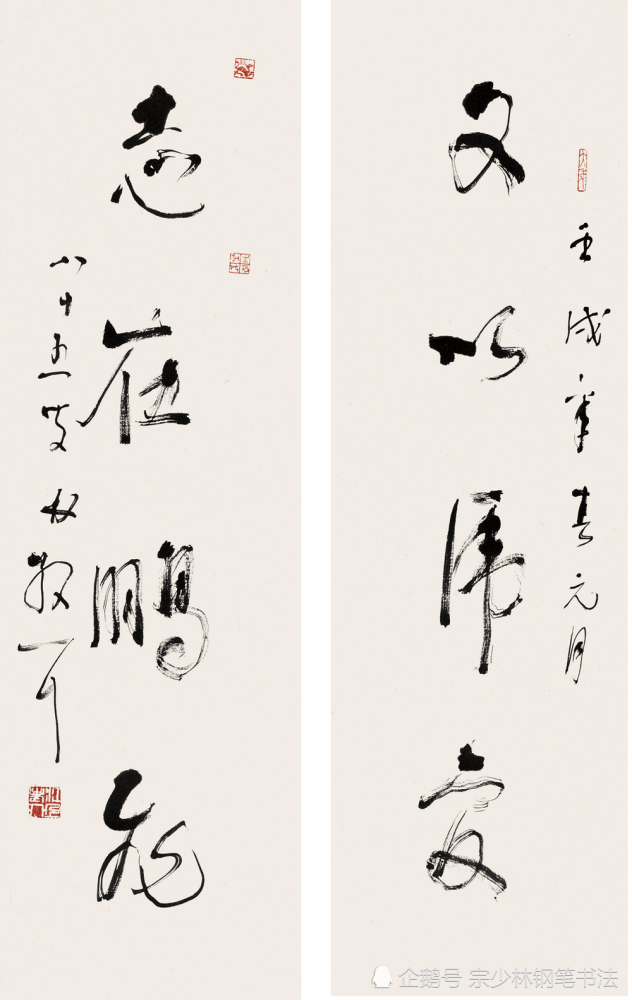 壬戌年春元月
文以虎變
志在鵬飛
八十五叟林散耳
企鹅号 宗少林钢笔书法